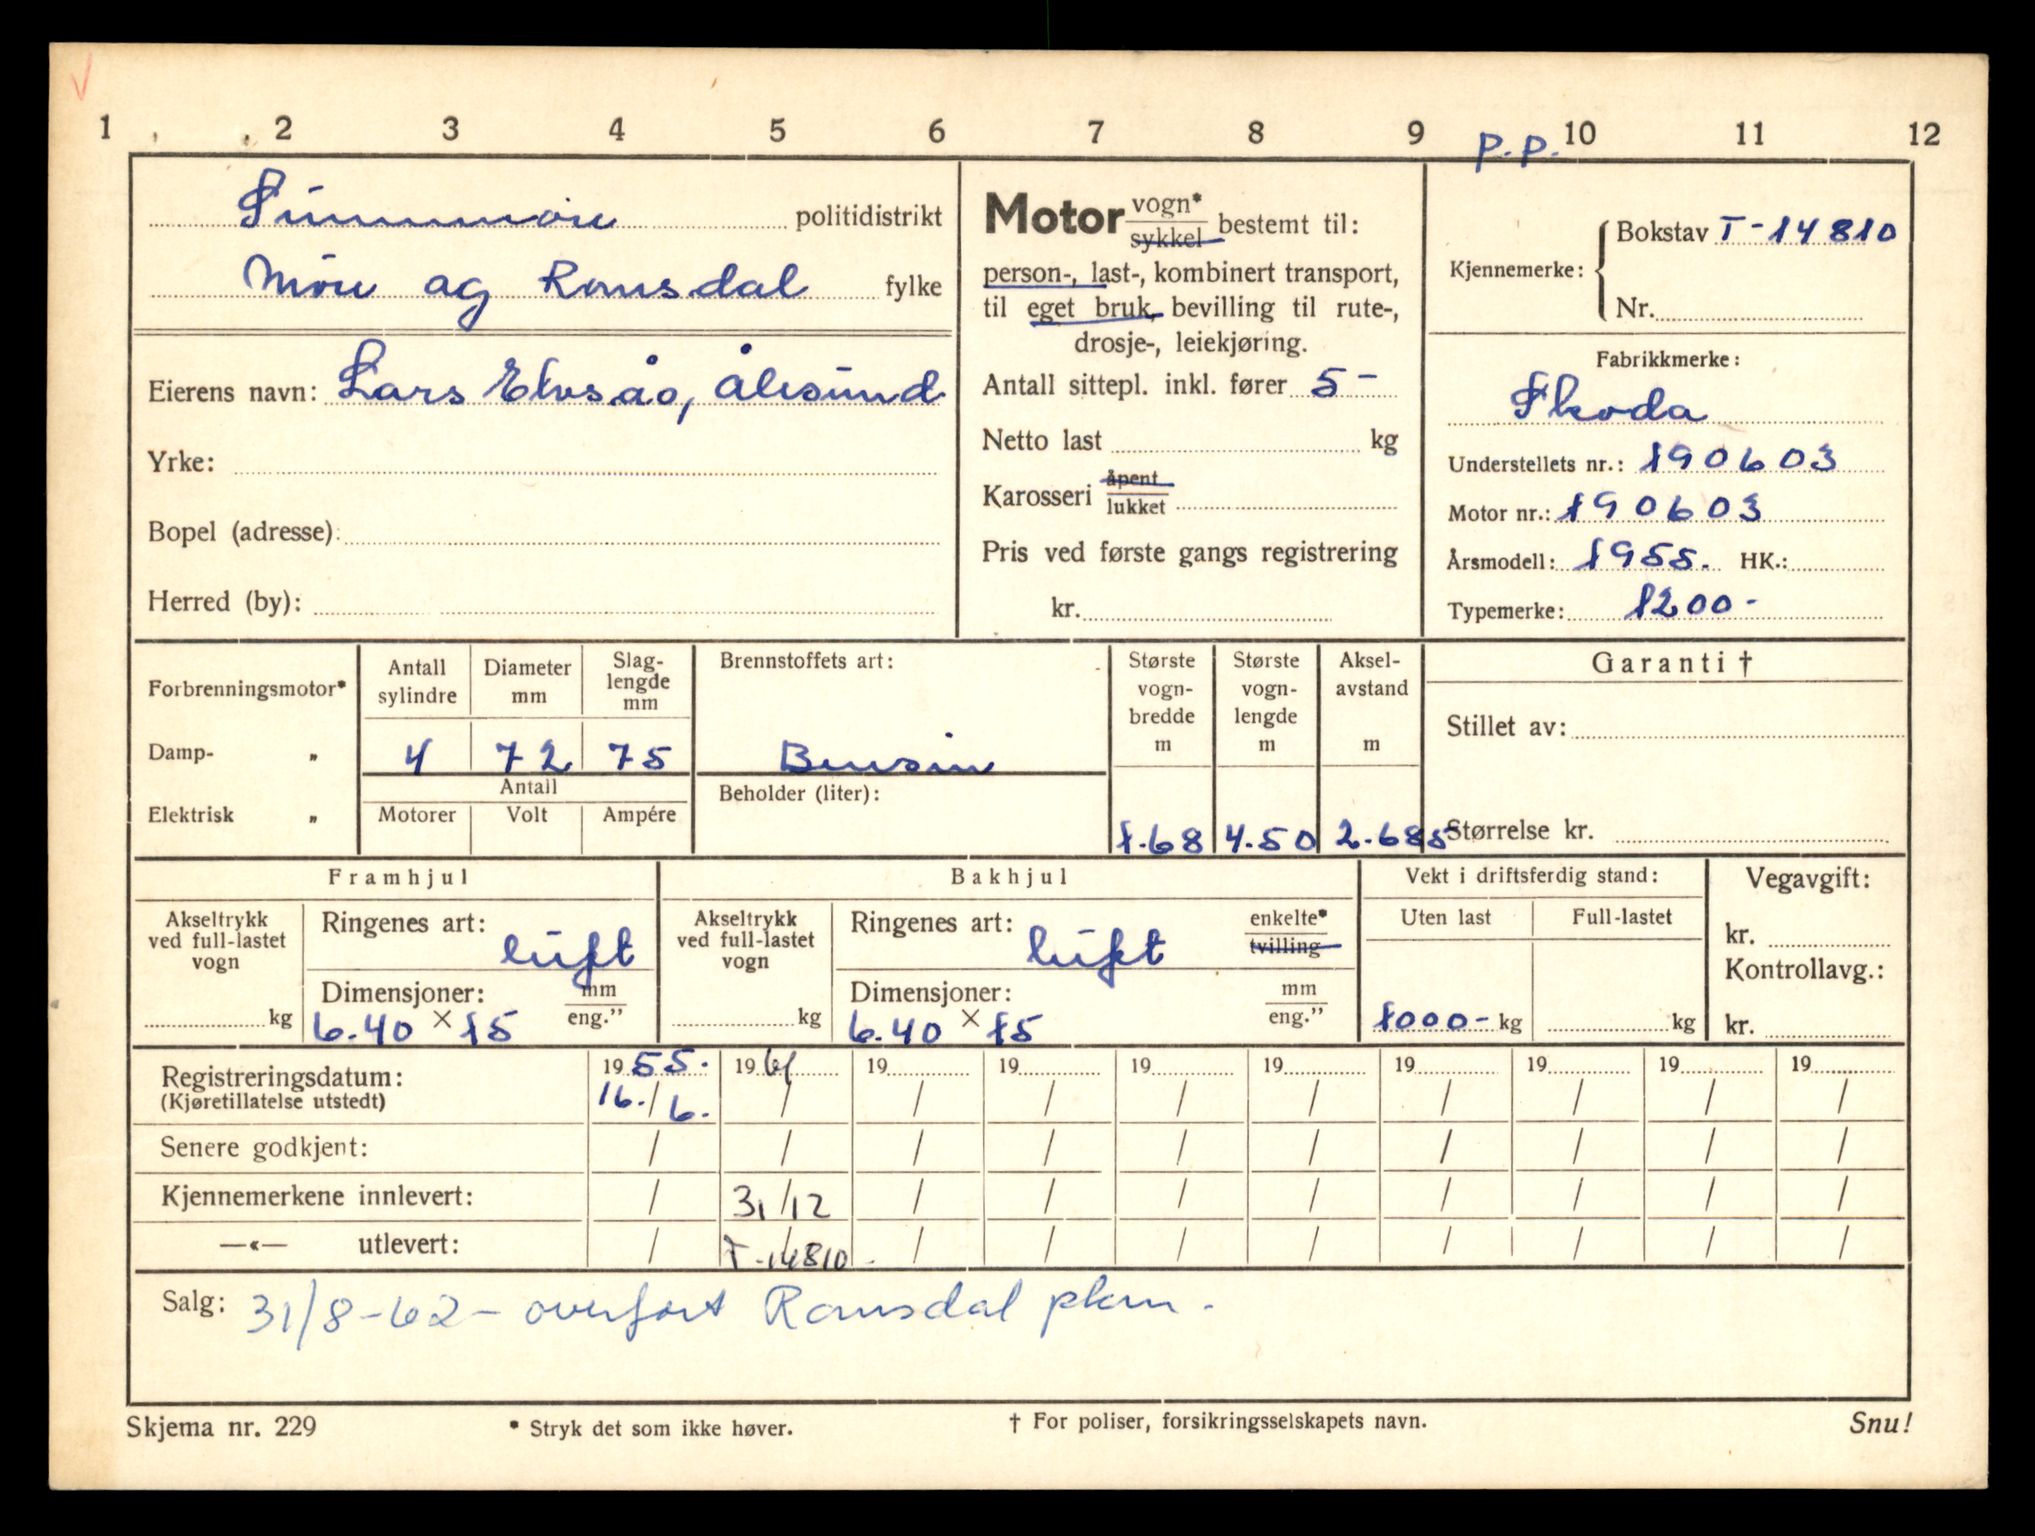 1 2 3 4 5 6 7 8 9 10 11 12
P.P.
Sunnmøre politidistrikt
Møre og Romsdal fylke
Eierens navn: Lars Elvsås, Ålesund
Yrke:
Bopel (adresse):
Herred (by):
Motor vogn* sykkel bestemt til:
person-, last-, kombinert transport,
til eget bruk, bevilling til rute-,
drosje-, leiekjøring.
Antall sittepl. inkl. fører 5 -
Netto last kg
Karosseri åpent lukket
Pris ved første gangs registrering
kr.
Kjennemerke:
Bokstav T-14810
Nr.
Fabrikkmerke:
Skoda
Understellets nr.: 190603
Motor nr.: 190603
Årsmodell: 1955. HK.:
Typemerke: 1200-
Forbrenningsmotor*
Damp- „
Elektrisk „
Antall sylindre
Diameter mm
Slag-lengde mm
4 72 75
Antall
Motorer Volt Ampére
Brennstoffets art:
Bensin
Beholder (liter):
Største vogn-bredde m
Største vogn-lengde m
Aksel-avstand m
1.68 4.50 2.685
Garanti †
Stillet av:
Størrelse kr.
Framhjul
Akseltrykk ved full-lastet vogn
kg
Ringenes art: luft
Dimensjoner: mm eng.”
6.40 × 15
Bakhjul
Akseltrykk ved full-lastet vogn
kg
Ringenes art: luft enkelte* tvilling
Dimensjoner: mm eng.”
6.40 × 15
Vekt i driftsferdig stand:
Uten last Full-lastet
1000- kg kg
Vegavgift:
kr.
Kontrollavg.:
kr.
Registreringsdatum: 1955. 1961 19 19 19 19 19 19 19 19
(Kjøretillatelse utstedt) 16./6. / / / / / / / / /
Senere godkjent: / / / / / / / / / /
Kjennemerkene innlevert: / 31/12 / / / / / / / /
—«— utlevert: / T-14810- / / / / / / / /
Salg: 31/8-62- overført Romsdal pkm.
Skjema nr. 229
* Stryk det som ikke høver.
† For poliser, forsikringsselskapets navn.
Snu!